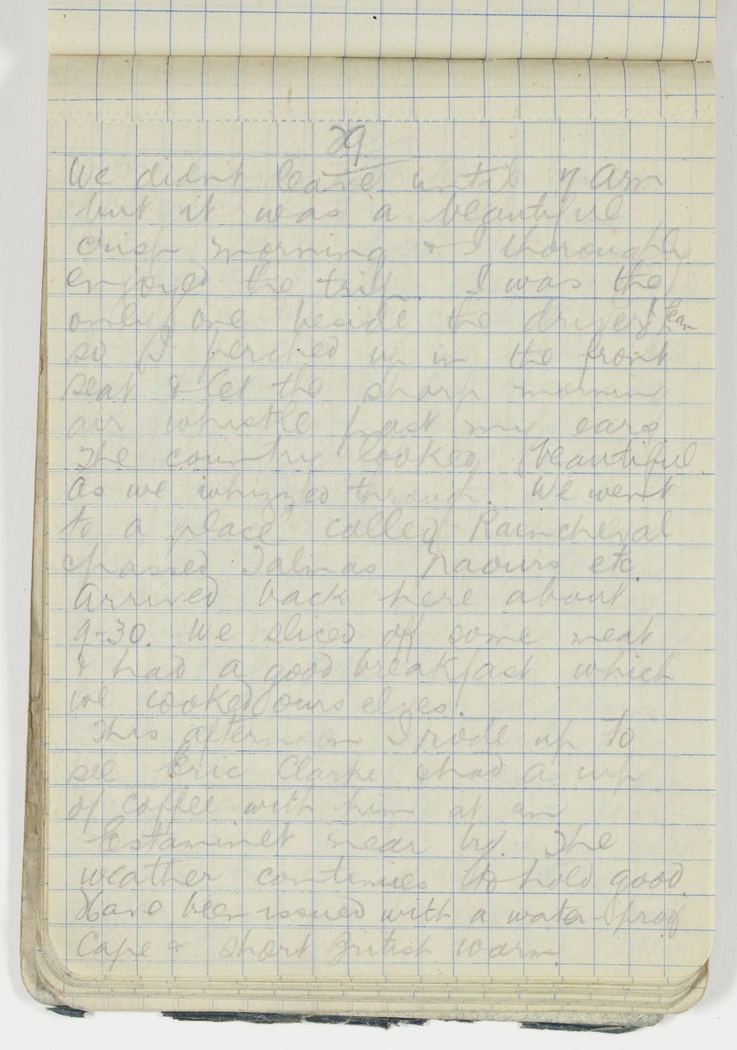 29
We didn't leave until 7 Am
but it was a beautiful
crisp morning & I thoroughly
enjoyed the trip. I was the
only one beside the driver
so I perched up in the front
seat & let the sharp morning
air whistle past my ears
The country looked beautiful
as we whizzed through. We went
to a place called Raincheval
passed Talmas Naours etc
Arrived back here about
9-30. We sliced off some meat
& had a good breakfast which
we cooked ourselves.
This afternoon I rode up to
see Eric Clarke & had a cup
of coffee with him at an
Estaminet near by. The
weather continues to hold good
Have been issued with a water-proof
Cape & short British warm